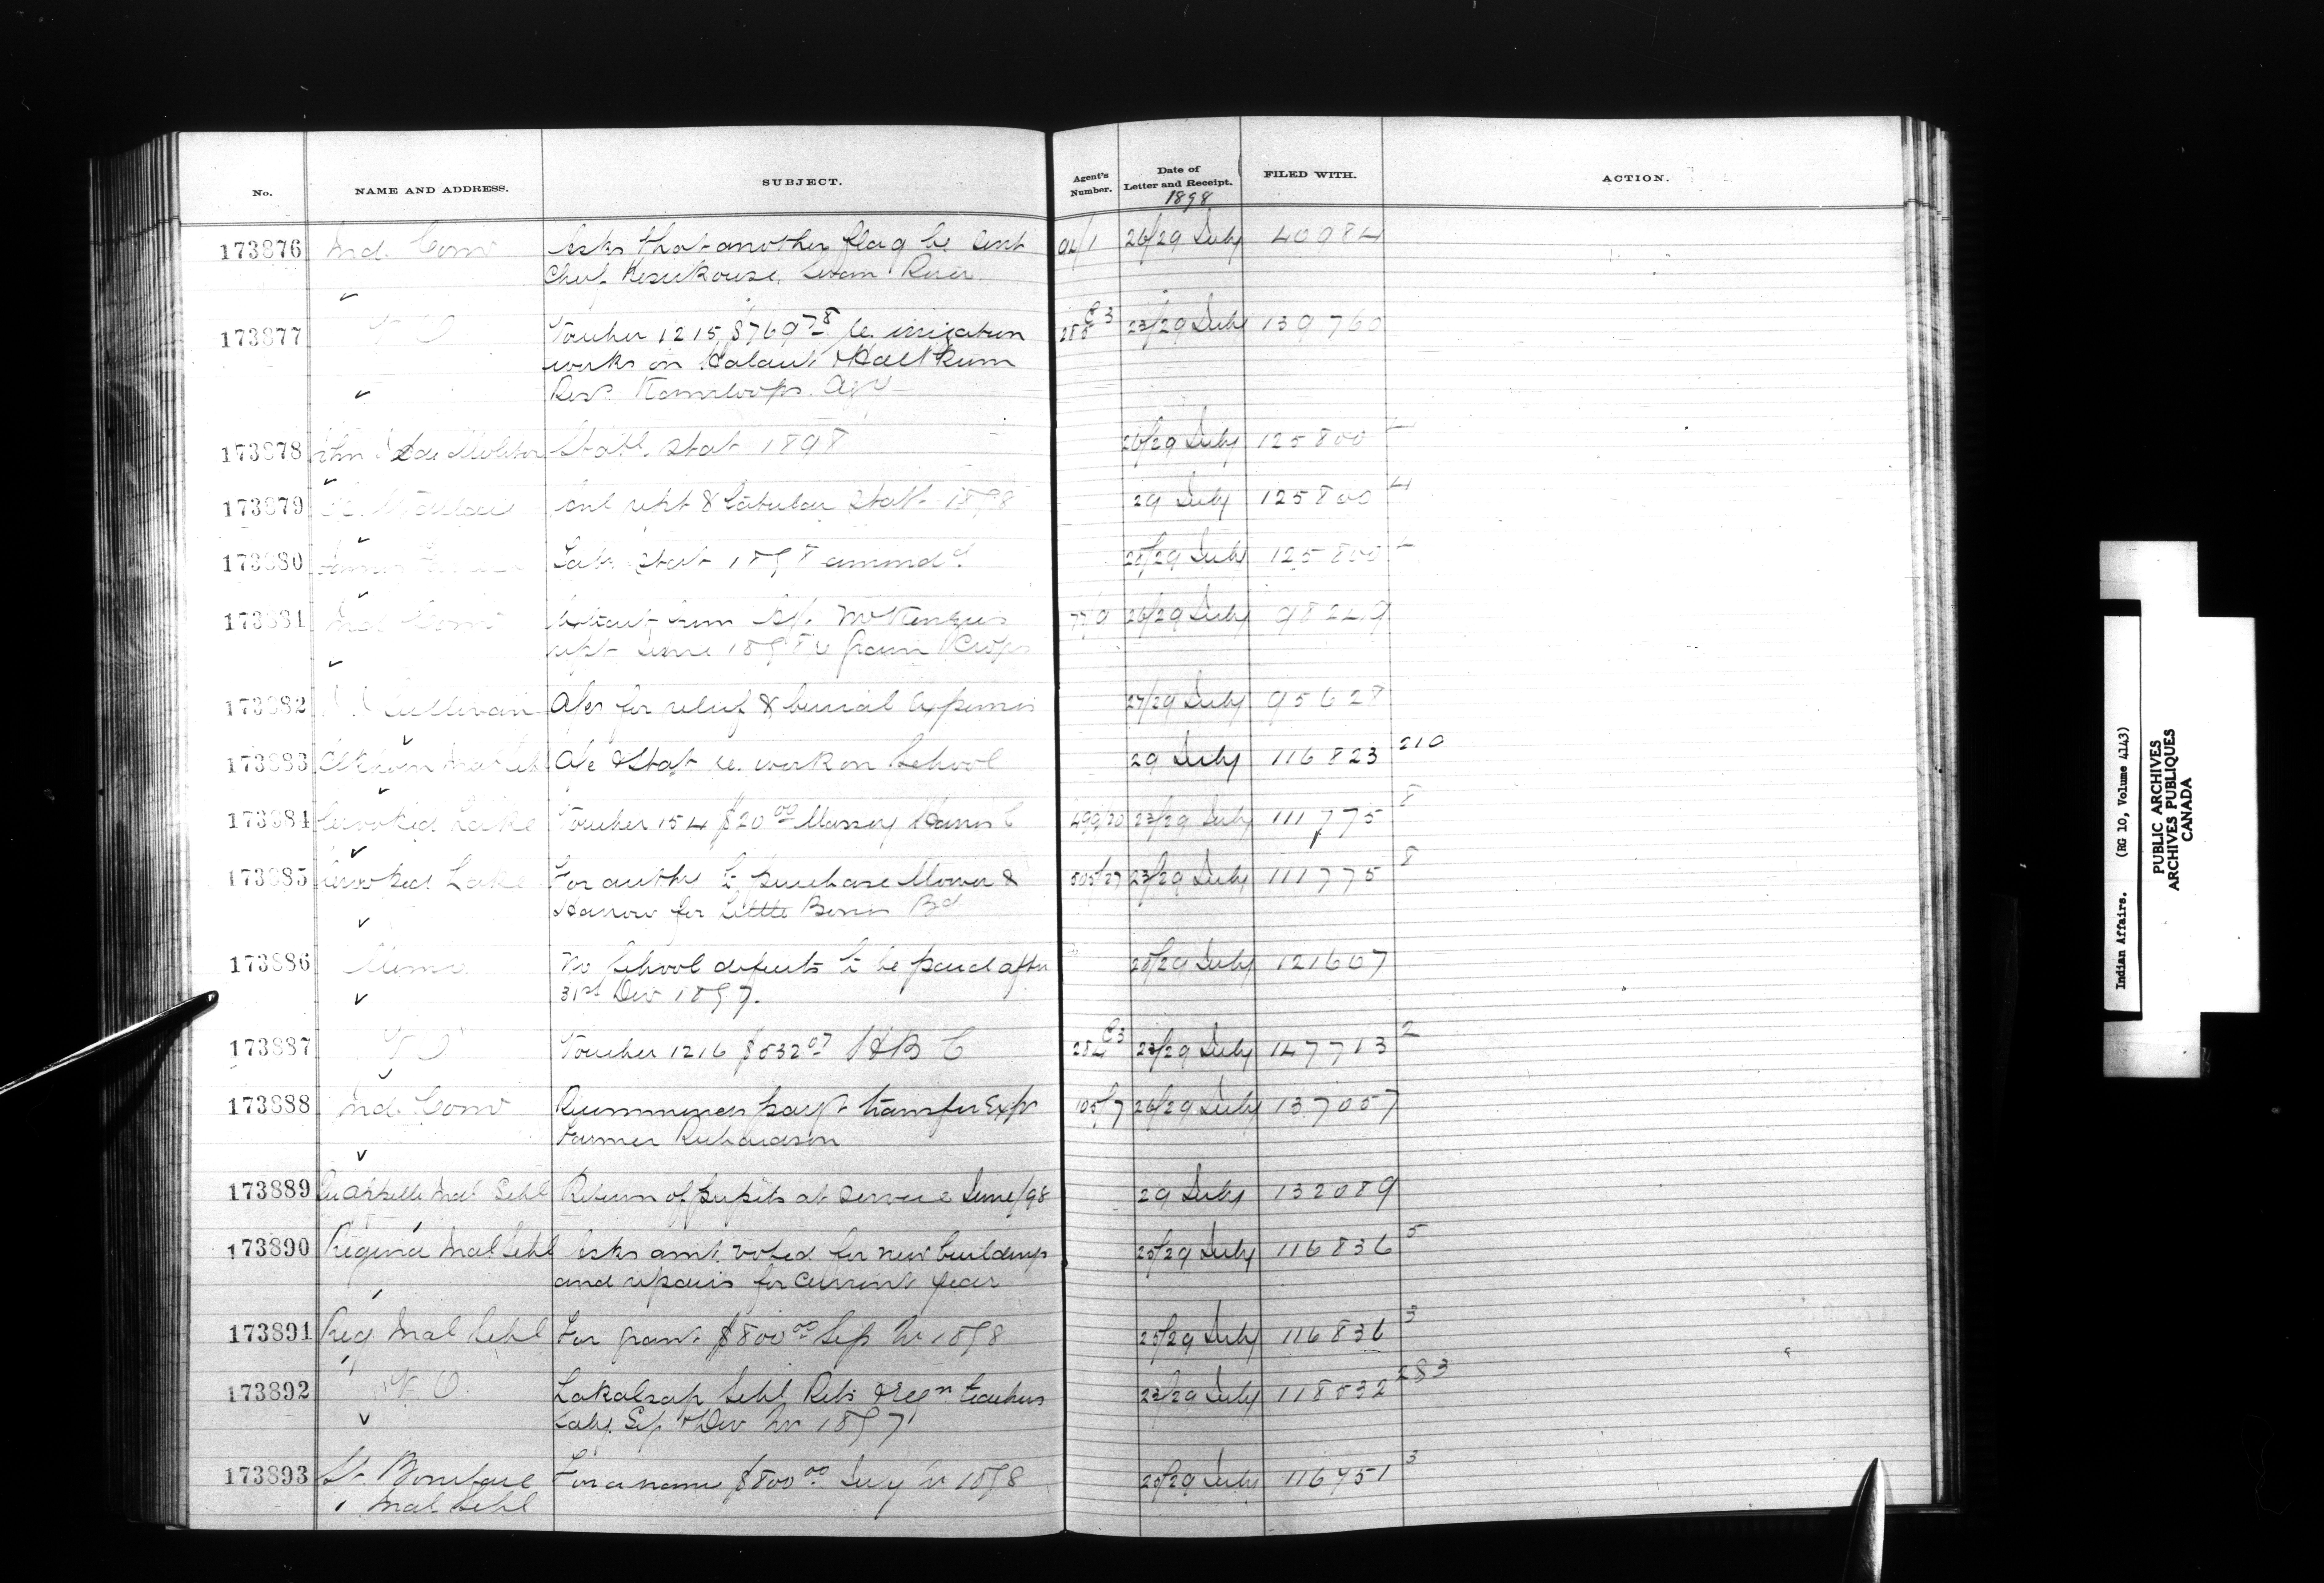 No. NAME AND ADDRESS. SUBJECT. Agent's Number. Date of Letter and Receipt. 1898 FILED WITH. ACTION.
173876 Ind. Com Asks that another flag be sent 94/1 26/29 July 40984
Chief River
173877 V O Voucher 1215 $769 78 re irrigation 285 C3 23/29 July 139760
works on &
Res Kamloops Agy
173878 Stat 1898 26/29 July 125800
173879 rept & tabular Statt 1898 29 July 125800 4
173880 Tab Stat 1898 amend d 28/29 July 125800
173881 Ind Com Extract from Agt McKenzie's 26/29 July 98249
rept June 1898 re Grain & Crops
173882 Sullivan A/cs for relief & burial Expenses 27/29 July 95628
173883 Elkhorn Indl Schl A/c & Stat re. work on School 29 July 116823 210
173884 Crooked Lake Voucher 154 $20 00 Massey Harris C 499/20 23/29 July 111775 8
173885 Crooked Lake For authy to purchase Mower & 505/27 23/29 July 111775 8
Harrow for Little Bones Bd
173886 Memo No School deficits to be paid after 28/29 July 121607
31st Dec 1897.
173887 V O Voucher 1216 $532 07 H B C 284 C3 23/29 July 147713 2
173888 Ind. Com Recommends payt transfer Exps 105/7 26/29 July 137057
Farmer Richardson
173889 Quappelle Indl Schl Return of pupils at service June/98 29 July 132089
173890 Regina Indl Schl Asks amt. voted for new buildings 25/29 July 116836 5
and repairs for current year
173891 Reg Indl Schl For grant $800 00 Sep Qr 1898 25/29 July 116836 3
173892 V O. Lakalsap Schl Rets & Teachers 23/29 July 118532 283
Saly. Sep & Dec Qr 1897
173893 St. Boniface For $800 00 July 1898 26/29 July 116751 3
Indl Schl
Indian Affairs. (RG 10, Volume 4143)
PUBLIC ARCHIVES
ARCHIVES PUBLIQUES
CANADA